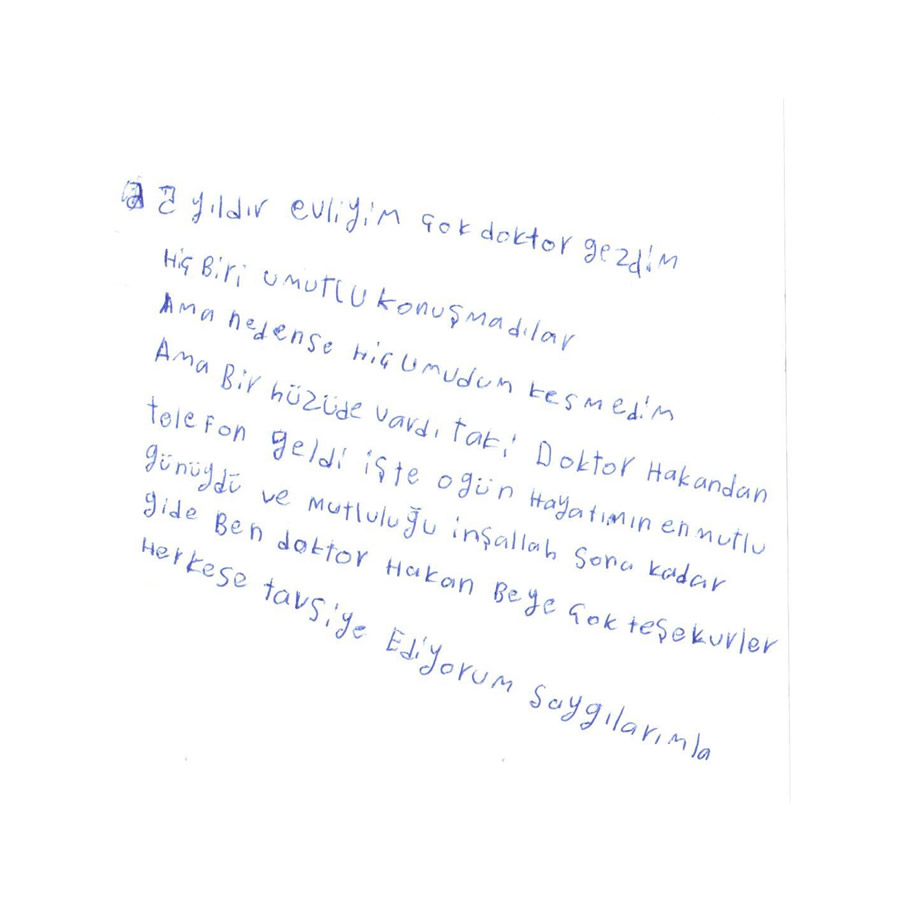 2 yıldır evliyim çok doktor gezdim
Hiç Biri umutlu konuşmadılar
Ama nedense Hiç Umudum kesmedim
Ama Bir hüzüde vardı taki Doktor Hakandan
telefon geldi işte ogün Hayatımın en mutlu
günüydü ve mutluluğu inşallah sona kadar
gide Ben doktor Hakan Beye çok teşekurler
Herkese tavsiye Ediyorum saygılarımla